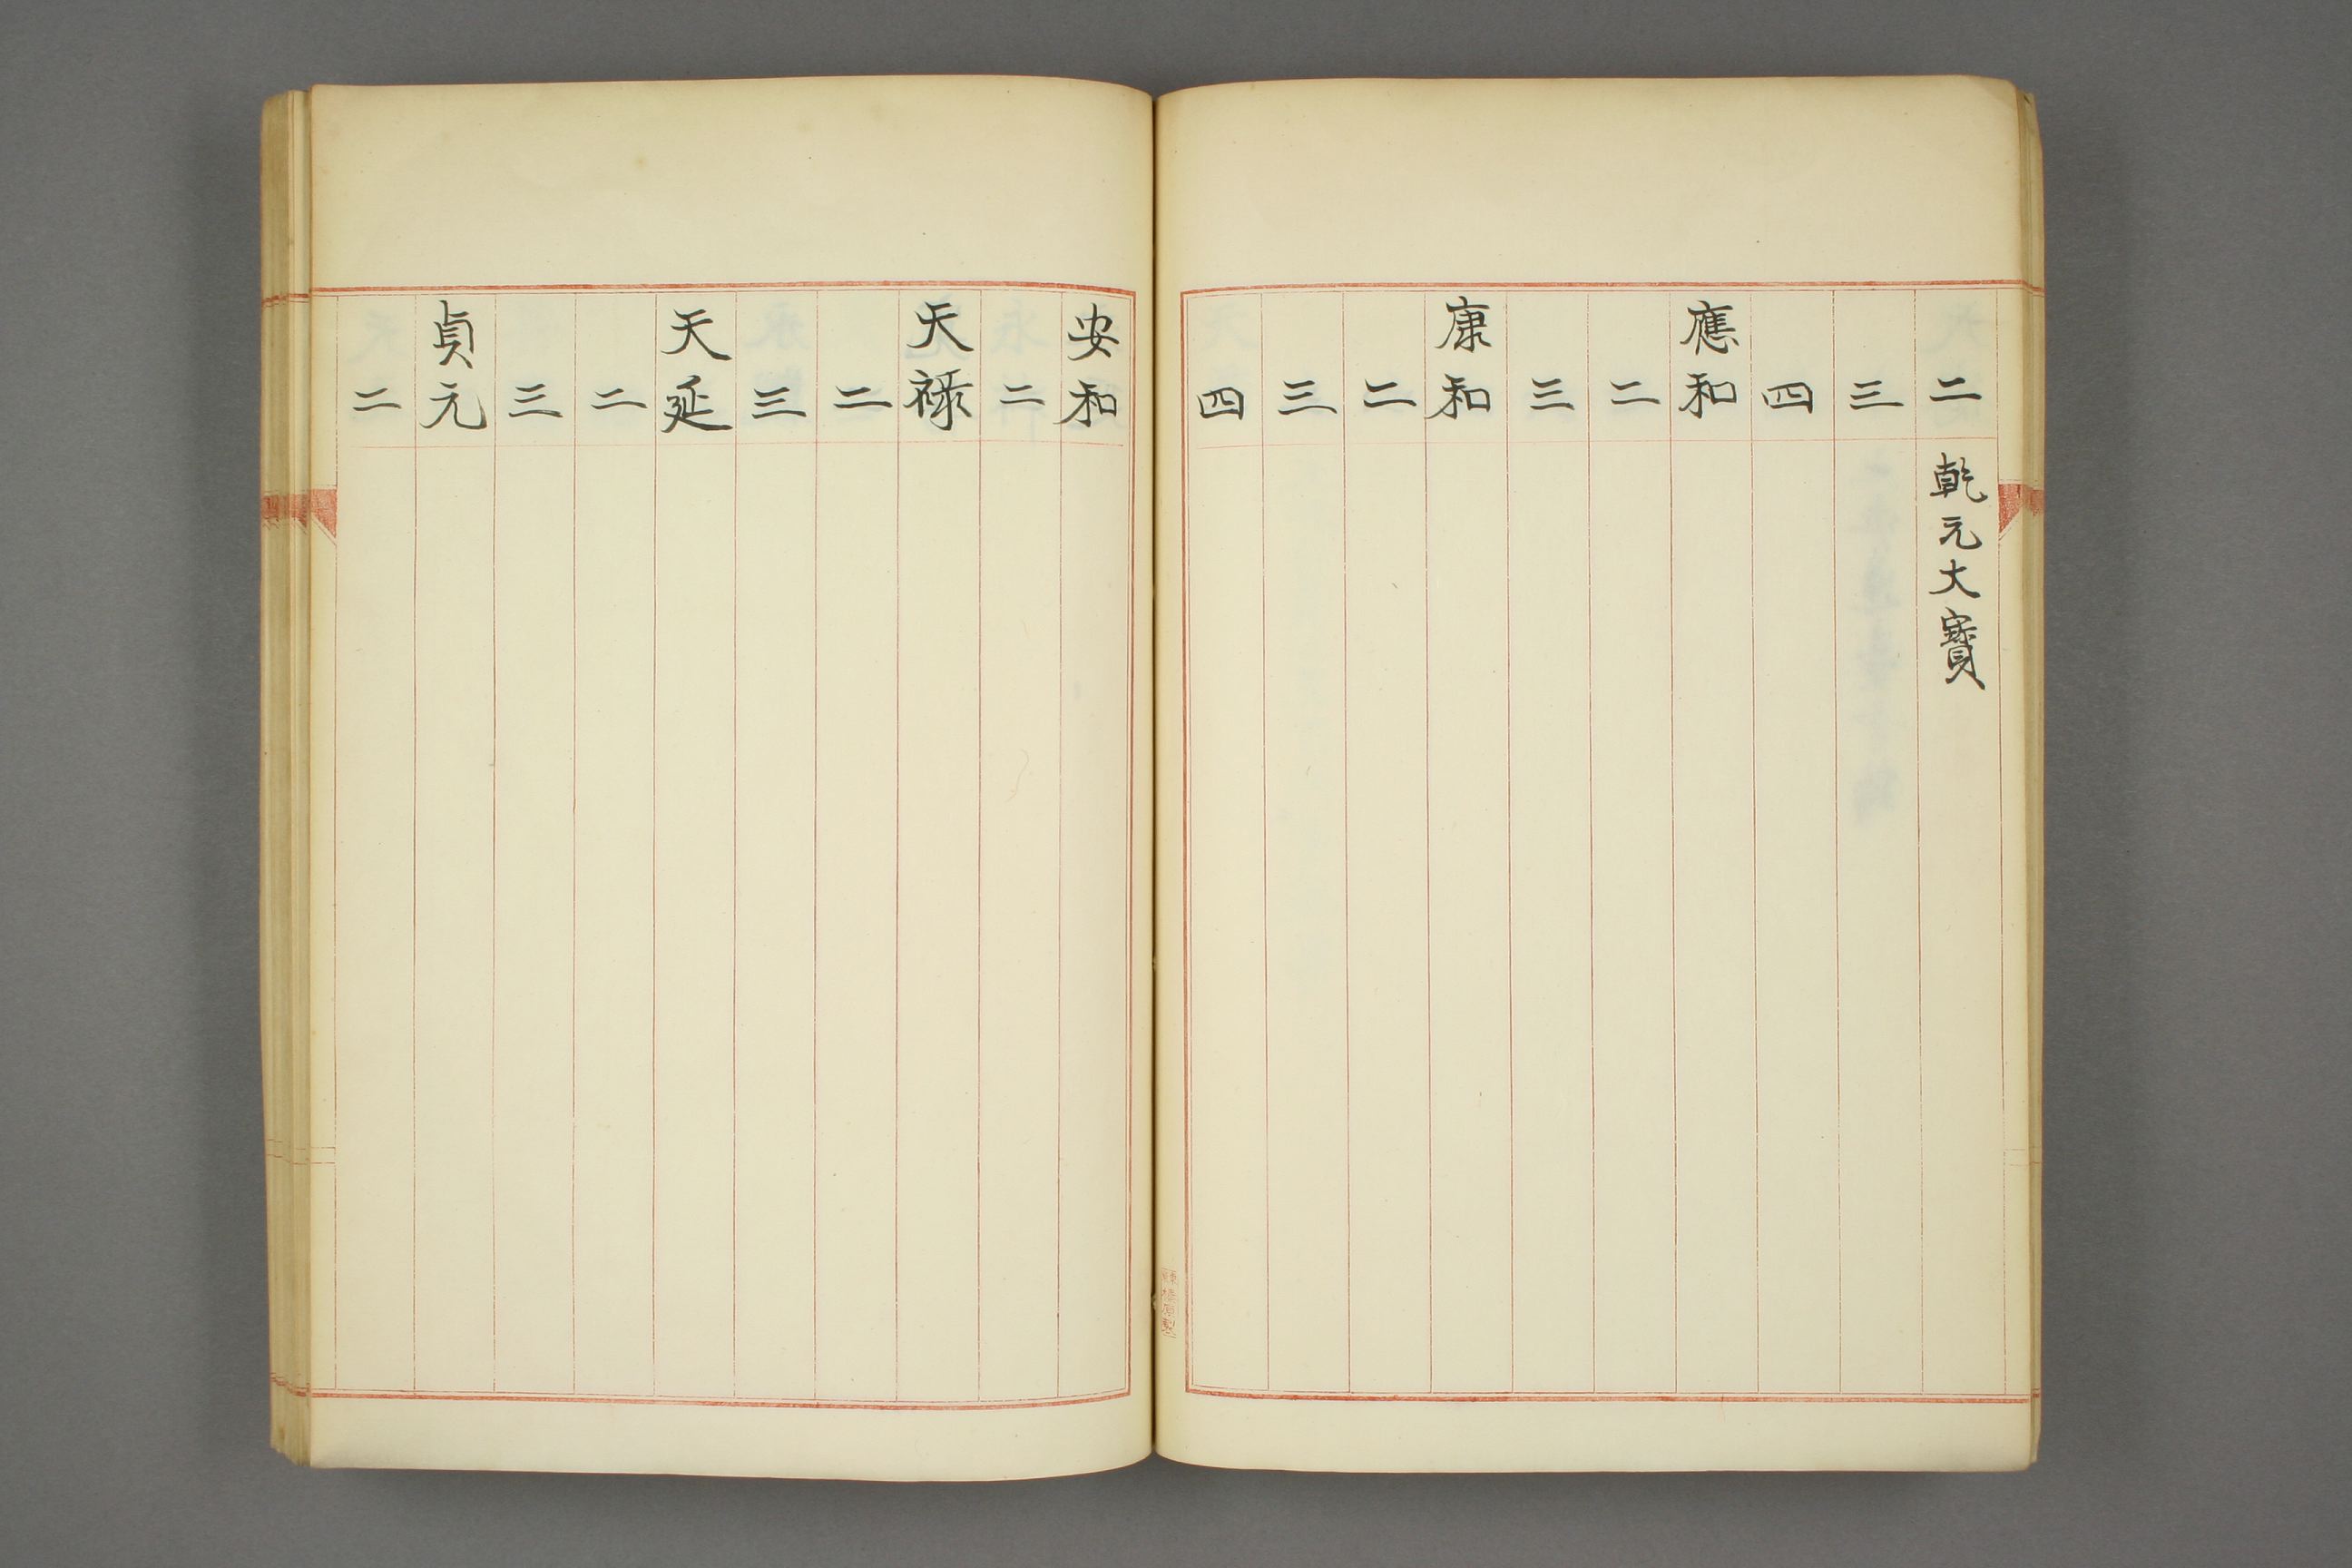 二 乾元大寶
三
四
應和
二
三
康和
二
三
四
安和
二
天禄
二
三
天延
二
三
貞元
二